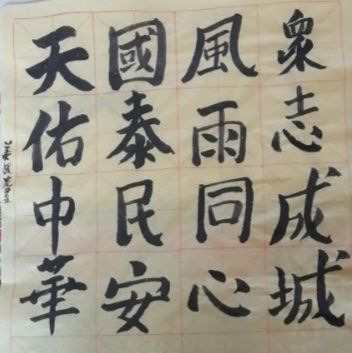 眾志成城
風雨同心
國泰民安
天佑中華